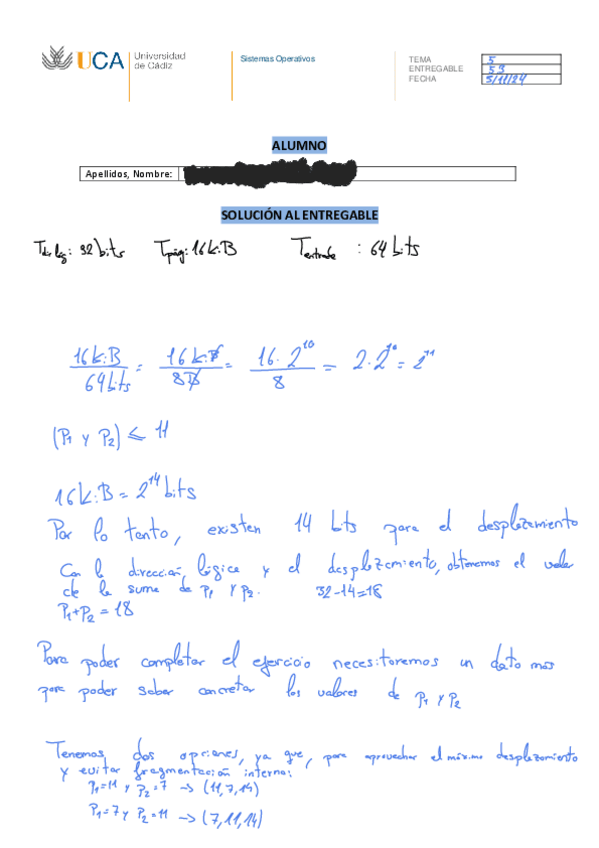 UCA Universidad de Cádiz
Sistemas Operativos
TEMA 5
ENTREGABLE 53
FECHA 5/11/24
ALUMNO
Apellidos, Nombre:
SOLUCIÓN AL ENTREGABLE
Tdir lóg: 32 bits Tpág: 16 KiB Tentrada : 64 bits
16 KiB / 64 bits = 16 KiB / 8 B = 16 · 2^10 / 8 = 2 · 2^10 = 2^11
(P1 y P2) ≤ 11
16 KiB = 2^14 bits
Por lo tanto, existen 14 bits para el desplazamiento
Con la dirección lógica y el desplazamiento, obtenemos el valor
de la suma de P1 y P2. 32-14=18
P1+P2 = 18
Para poder completar el ejercicio necesitaremos un dato más
para poder saber concretar los valores de P1 y P2
Tenemos dos opciones, ya que, para aprovechar el máximo desplazamiento
y evitar fragmentación interna:
P1=11 y P2=7 → (11,7,14)
P1=7 y P2=11 → (7,11,14)